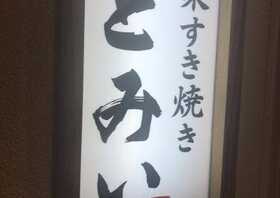 すき焼き
とみい